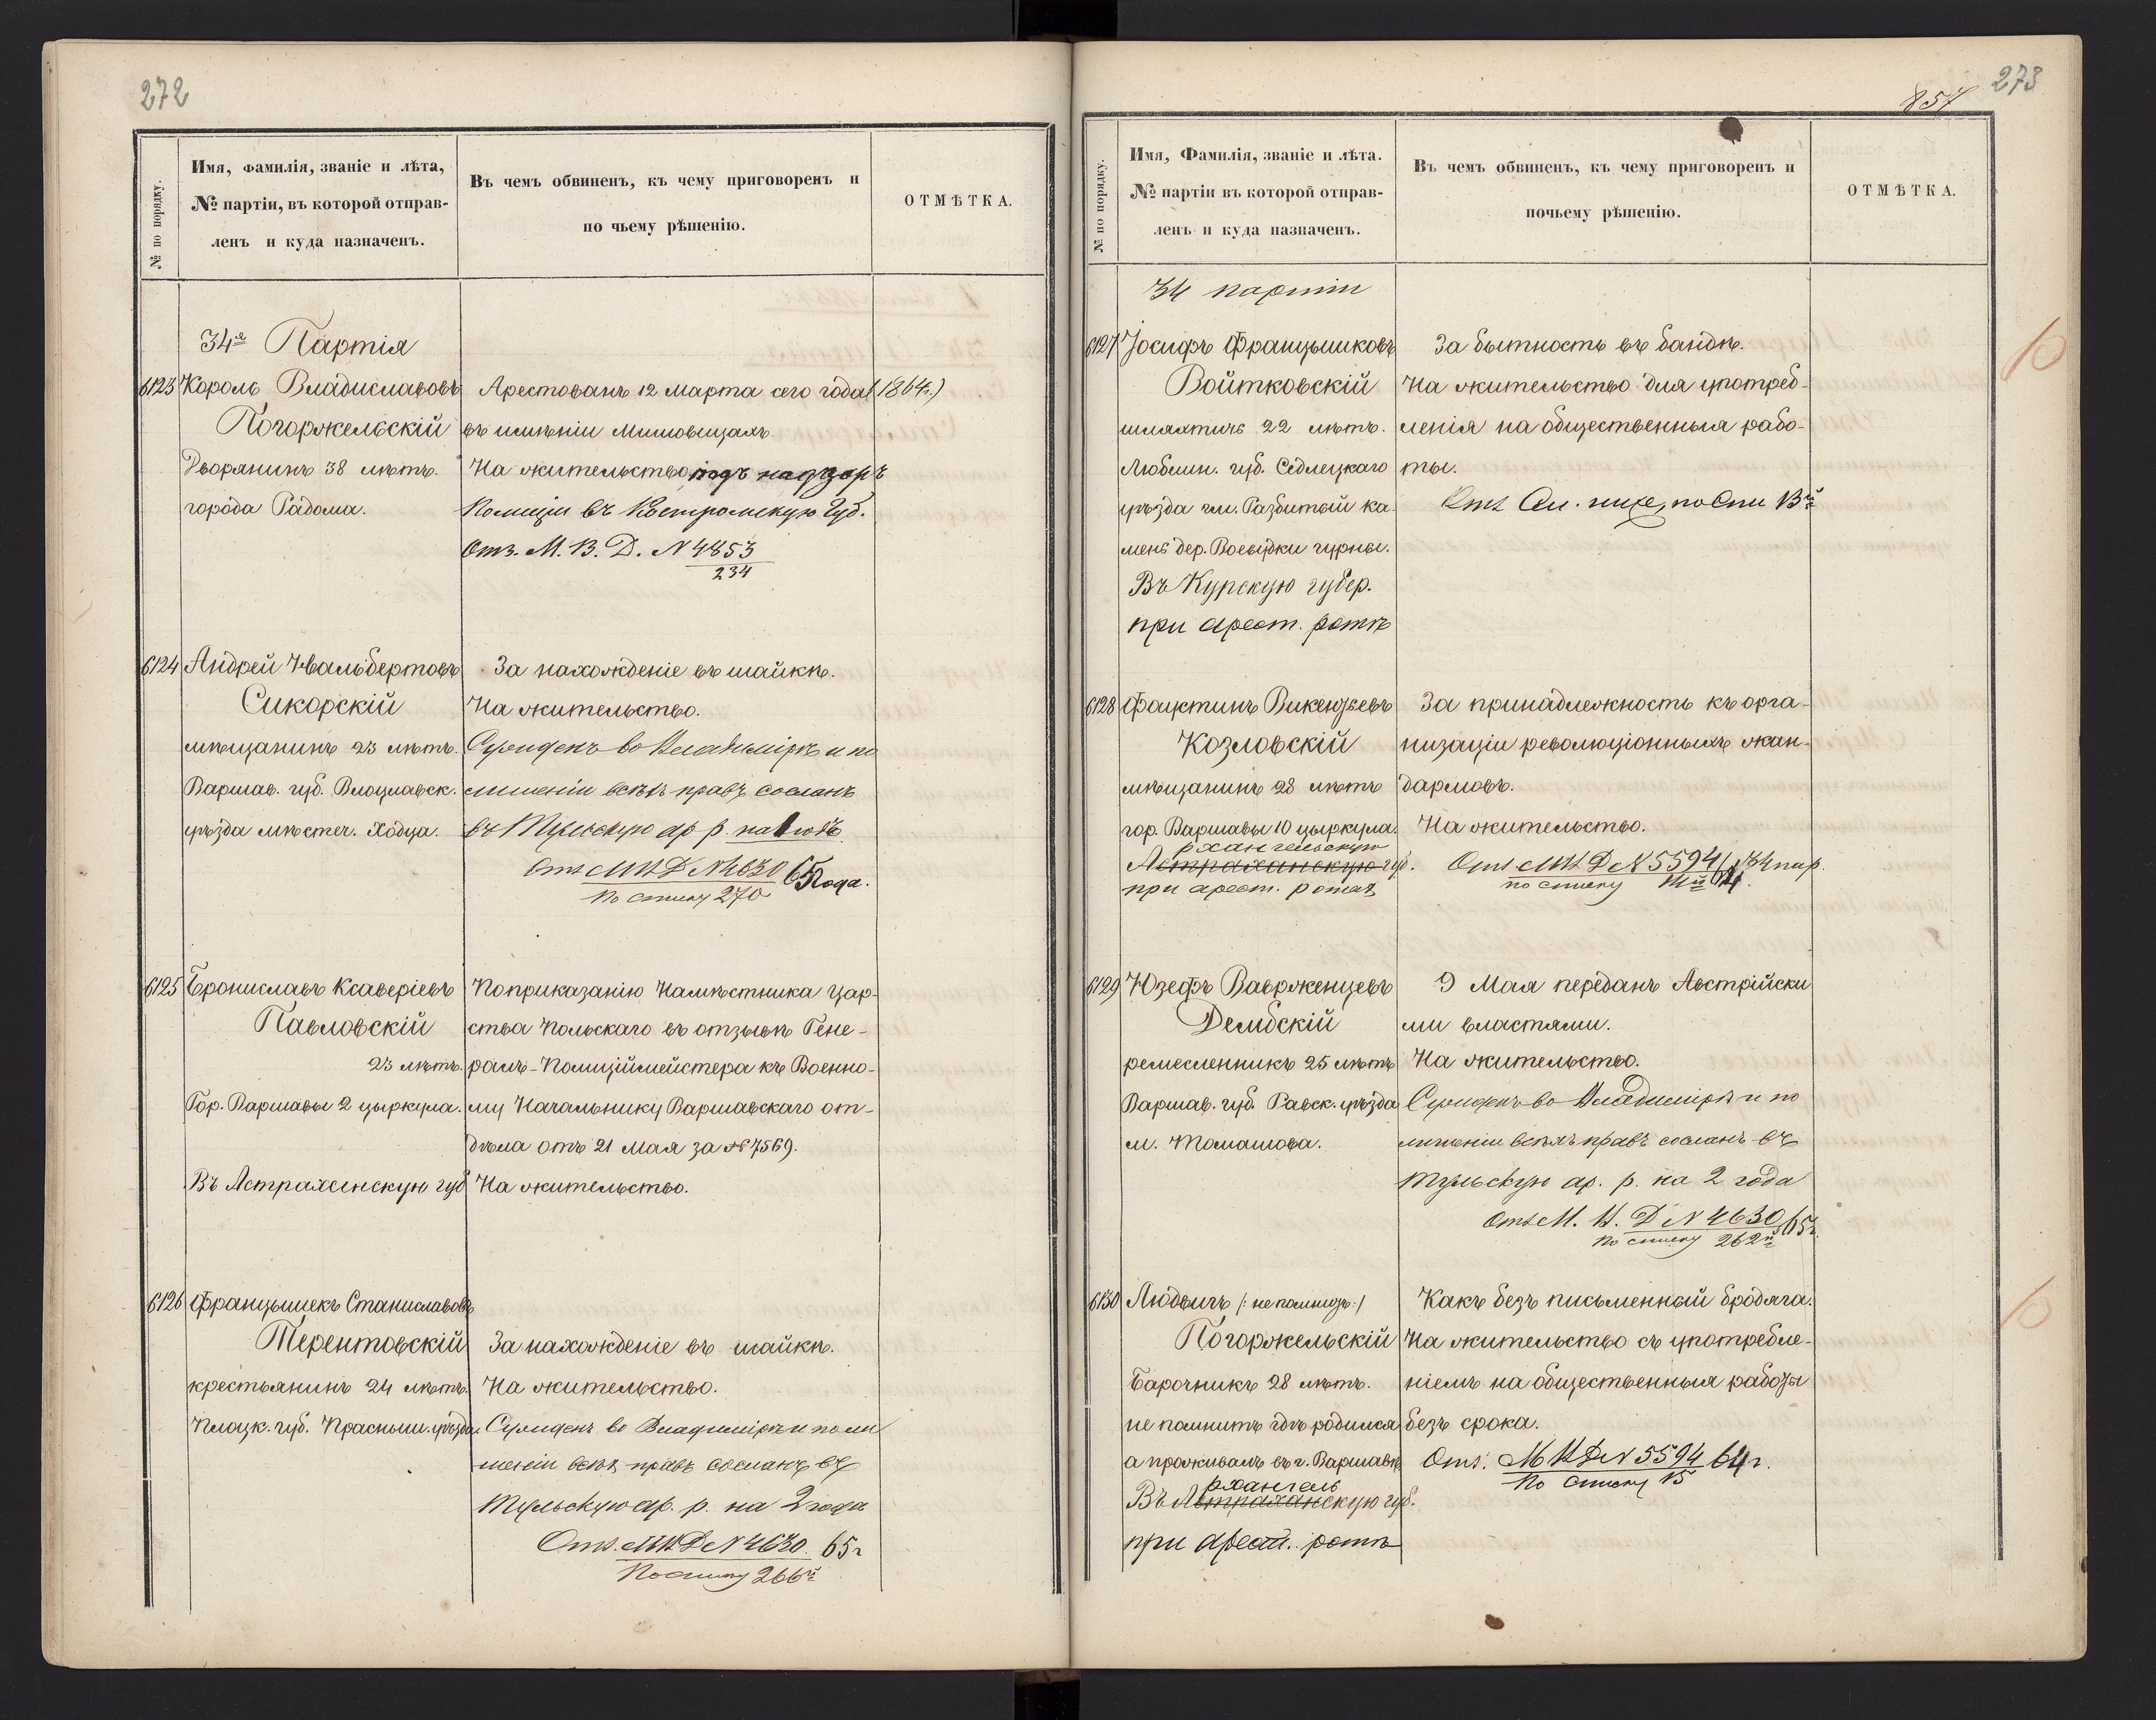 272
№ по порядку.
Имя, фамилія, званіе и лѣта,
№ партіи, въ которой отправ-
ленъ и куда назначенъ.
Въ чемъ обвиненъ, къ чему приговоренъ и
по чьему рѣшенію.
ОТМѢТКА.
34я Партія
6123 Кароль Владиславовъ
Погоржельскій
Дворянинъ 38 лѣтъ.
города Радома.
Арестованъ 12 Марта сего года (1864г.)
въ имѣніи
На жительство подъ надзоръ
Полиціи въ Костромскую Губ.
Отз. М. В. Д. N 4853
234
6124 Андрей Вальбертовъ
Сикорскій
мѣщанинъ 23 лѣтъ.
Варшав. губ. Влоцлавск.
уѣзда мѣстеч. Ходча.
За нахожденіе въ шайкѣ.
На жительство.
Сужденъ во Владимірѣ и по
лишеніи всѣхъ правъ сосланъ
въ Тульскую ар р.
Отз МВД N 4630 65 года.
По списку 270
6125 Брониславъ Ксаверіевъ
Павловскій
23 лѣтъ.
Гор. Варшавы 2 цыркула.
Въ Астраханскую губ
По приказанію Намѣстника Цар-
ства Польскаго въ отзывѣ Гене-
ралъ-Полиціймейстера къ Военно-
му Начальнику Варшавскаго от-
дѣла отъ 21 Мая за № 7569).
На жительство.
6126 Францышекъ Станиславовъ
Терентовскій
крестьянинъ 24 лѣтъ.
Плоцк. губ. Прасныш. уѣзда.
За нахожденіе въ шайкѣ.
На жительство.
Сужденъ во Владимірѣ и по ли
шеніи всѣхъ правъ сосланъ въ
Тульскую ар. р. на 2 года
Отз. МВД N 4630 65г
По списку 266й
273
857
№ по порядку.
Имя, Фамилія, званіе и лѣта.
№ партіи въ которой отправ-
ленъ и куда назначенъ.
Въ чемъ обвиненъ, къ чему приговоренъ и
почьему рѣшенію.
ОТМѢТКА.
34 партіи
6127 Іосифъ Францышковъ
Войтковскій
шляхтичъ 22 лѣтъ.
Люблин. губ. Седлецкаго
уѣзда гм. Разбитый ка
мень дер. гурны.
Въ Курскую губер.
при арест. ротѣ
За бытность въ бандѣ.
На жительство для употреб-
ленія на общественныя рабо-
ты.
10
6128 Фаустинъ Викентьевъ
Козловскій
мѣщанинъ 28 лѣтъ
гор. Варшавы 10 цыркула.
рхангельскую
Астраханскую губ.
при арест. ротах
За принадлежность къ орга-
низаціи революціонныхъ жан-
дармовъ.
На жительство.
Отз. МВД N 5594 64 34 пар.
по списку
6129 Юзефъ Вавроженцевъ
Дембскій
ремесленникъ 25 лѣтъ
Варшав. губ. Равск. уѣзда
м. Томашова.
9 Мая переданъ Австрійски
ми властями.
На жительство.
Сужденъ во Владимірѣ и по
лишеніи всѣхъ правъ сосланъ въ
Тульскую ар. р. на 2 года
Отз М. В. Д N 4630 65г.
по списку 262й
6130 Людвигъ /: не помнитъ :/
Погоржельскій
Барочникъ 28 лѣтъ.
не помнитъ гдѣ родился
а проживалъ въ г. Варшавѣ
рхангель
Въ Астраханскую губ.
при арест. ротѣ
Какъ безъ письменный бродяга.
На жительство съ употребле-
ніемъ на общественныя работы
безъ срока.
Отз. МВД N 5594 64г.
По списку 15
10